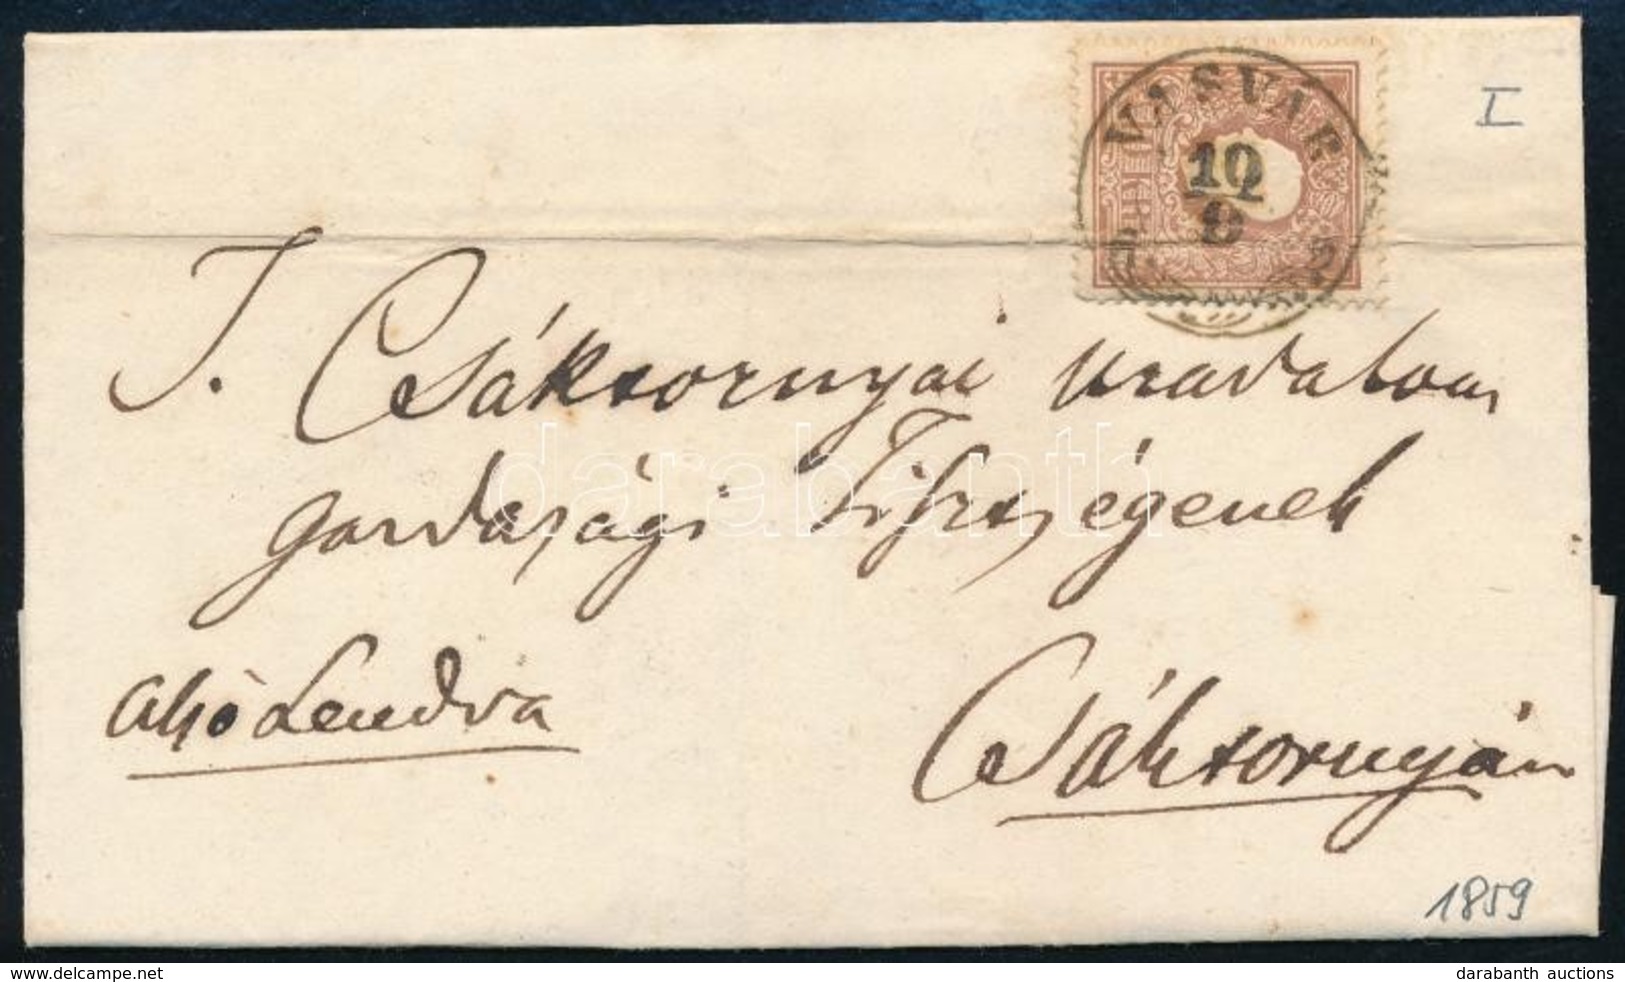 VASVÁR
I
10
9
T. Csáktornyai uradalom
gazdasági Tisztségének
Alsó Lendva
Csáktornyán
1859
darabanth
darabanth auctions